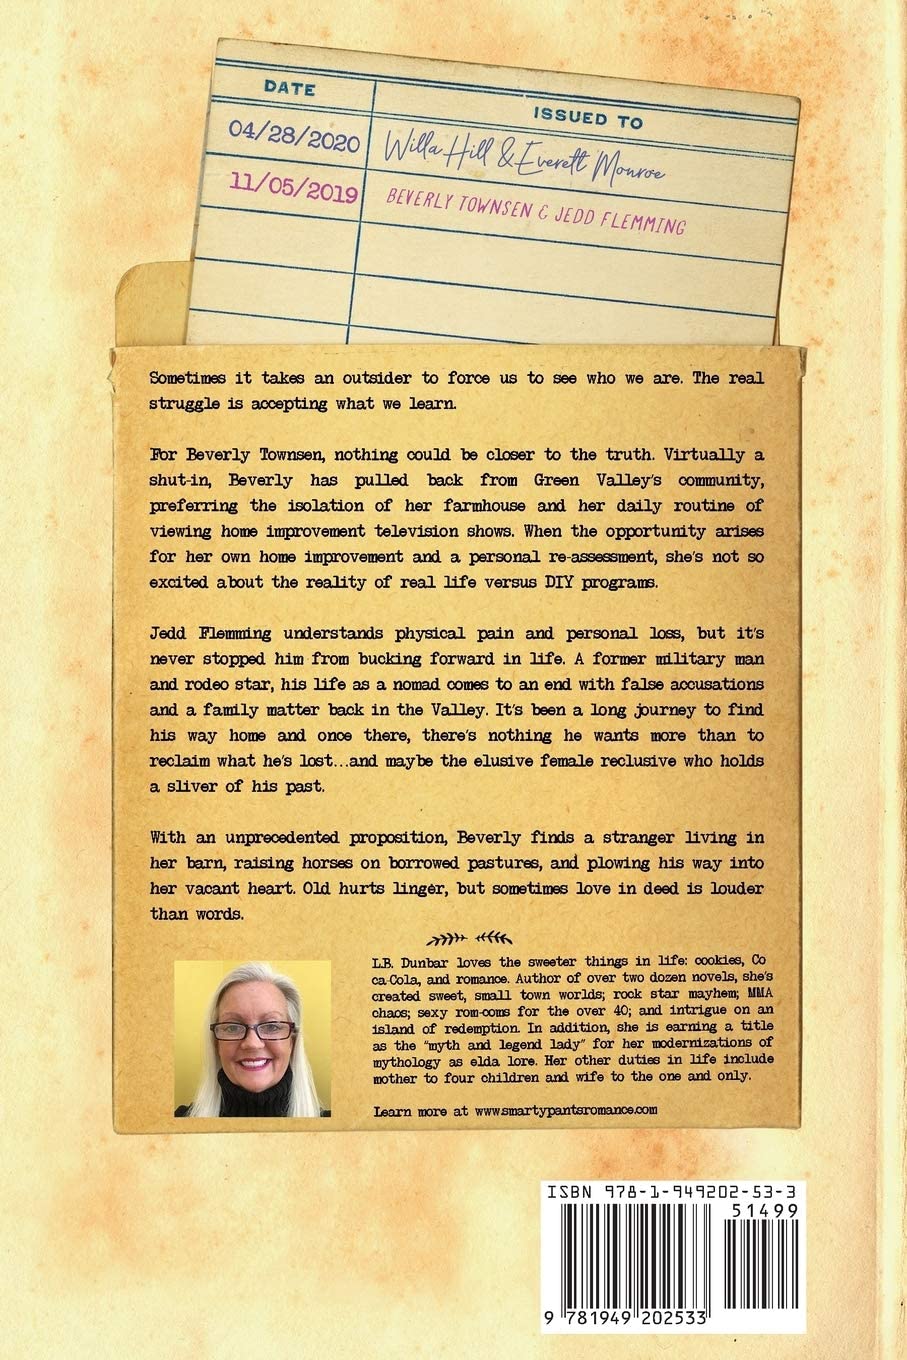 DATE
ISSUED TO
04/28/2020
Willa Hill & Everett Monroe
11/05/2019
BEVERLY TOWNSEN & JEDD FLEMMING
Sometimes it takes an outsider to force us to see who we are. The real
struggle is accepting what we learn.
For Beverly Townsen, nothing could be closer to the truth. Virtually a
shut-in, Beverly has pulled back from Green Valley's community,
preferring the isolation of her farmhouse and her daily routine of
viewing home improvement television shows. When the opportunity arises
for her own home improvement and a personal re-assessment, she's not so
excited about the reality of real life versus DIY programs.
Jedd Flemming understands physical pain and personal loss, but it's
never stopped him from bucking forward in life. A former military man
and rodeo star, his life as a nomad comes to an end with false accusations
and a family matter back in the Valley. It's been a long journey to find
his way home and once there, there's nothing he wants more than to
reclaim what he's lost...and maybe the elusive female reclusive who holds
a sliver of his past.
With an unprecedented proposition, Beverly finds a stranger living in
her barn, raising horses on borrowed pastures, and plowing his way into
her vacant heart. Old hurts linger, but sometimes love in deed is louder
than words.
L.B. Dunbar loves the sweeter things in life: cookies, Co
ca-Cola, and romance. Author of over two dozen novels, she's
created sweet, small town worlds; rock star mayhem; MMA
chaos; sexy rom-coms for the over 40; and intrigue on an
island of redemption. In addition, she is earning a title
as the "myth and legend lady" for her modernizations of
mythology as elda lore. Her other duties in life include
mother to four children and wife to the one and only.
Learn more at www.smartypantsromance.com
ISBN 978-1-949202-53-3
51499
9 781949 202533